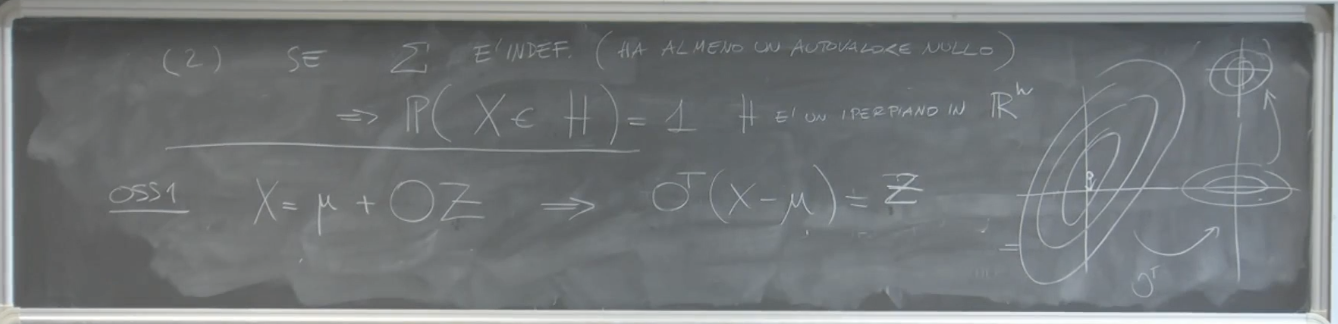 (2) SE Σ E' INDEF. (HA ALMENO UN AUTOVALORE NULLO)
=> ℙ(X ∈ H) = 1 H E' UN IPERPIANO IN ℝⁿ
OSS1 X = μ + OZ => Oᵀ(X-μ) = Z
Oᵀ